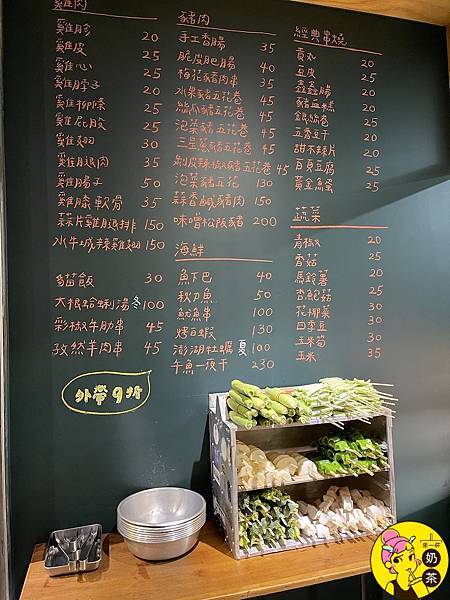 雞肉
雞胗 20
雞皮 25
雞心 25
雞脖子 20
雞柳條 25
雞屁股 25
雞翅 30
雞腿肉 35
雞腸子 50
雞膝軟骨 35
蒜片雞腿排 150
水牛城辣雞翅 150
貓飯 30
大根蛤蜊湯 冬 100
彩椒牛肋串 45
孜然羊肉串 45
外帶9折
豬肉
手工香腸 35
脆皮肥腸 40
梅花豬肉串 35
水果豬五花卷 45
絲瓜豬五花卷 45
泡菜豬五花卷 45
三星蔥豬五花卷 45
剝皮辣椒豬五花卷 45
泡菜豬五花 130
蒜香鹹豬肉 150
味噌松阪豬 200
海鮮
魚下巴 40
秋刀魚 50
魷魚串 100
烤白蝦 130
澎湖牡蠣 夏 100
午魚一夜干 230
經典串燒
貢丸 20
豆皮 20
鑫鑫腸 20
豬血糕 20
銀絲卷 25
五香豆干 20
甜不辣片 20
百頁豆腐 25
黃金魚蛋 25
蔬菜
青椒 20
香菇 25
馬鈴薯 20
杏鮑菇 25
花椰菜 30
四季豆 30
玉米筍 30
玉米 35
來一杯
奶茶